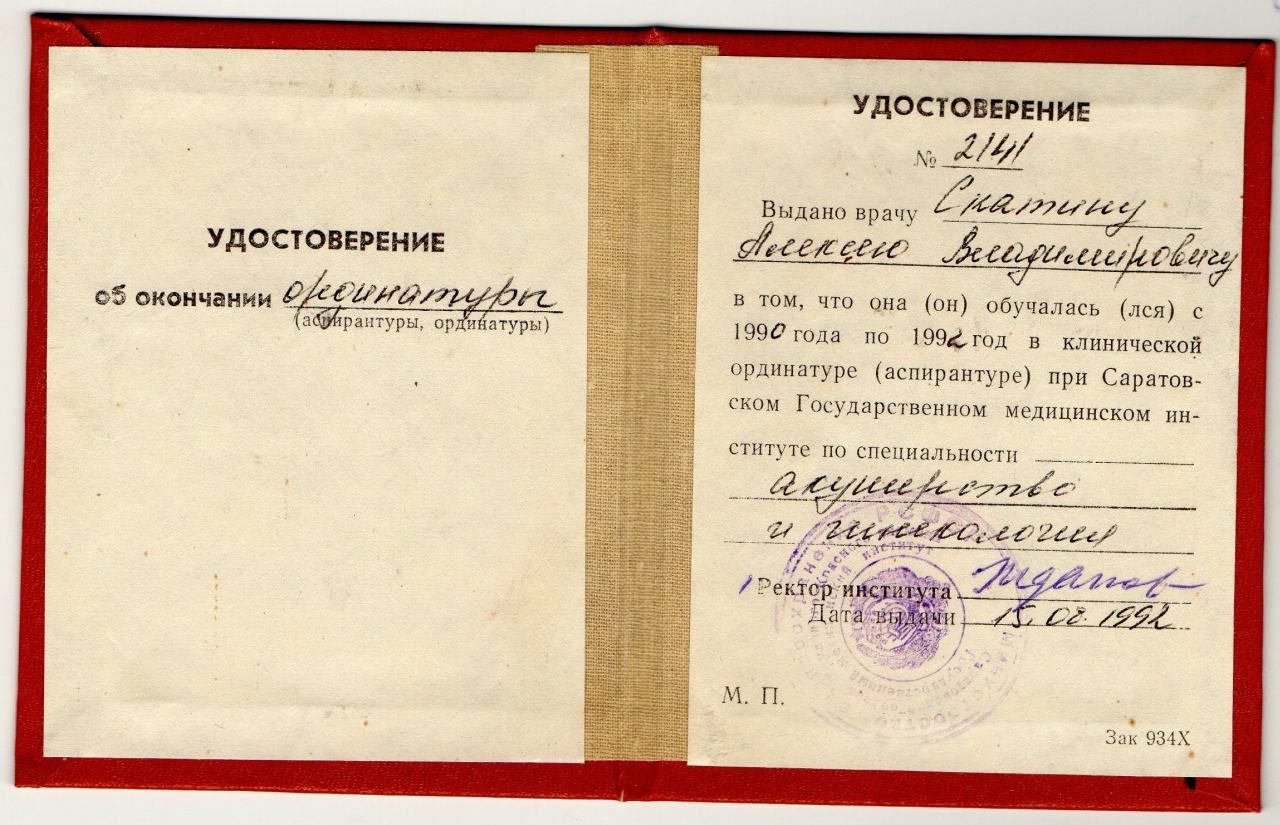 УДОСТОВЕРЕНИЕ
об окончании ординатуры
(аспирантуры, ординатуры)
УДОСТОВЕРЕНИЕ
№ 2141
Выдано врачу Скатину
Алексею Владимировичу
в том, что она (он) обучалась (лся) с
1990 года по 1992 год в клинической
ординатуре (аспирантуре) при Саратов-
ском Государственном медицинском ин-
ституте по специальности
акушерство
и гинекология
Ректор института
Дата выдачи 15.08.1992
М. П.
Зак 934Х
РСФСР
институт